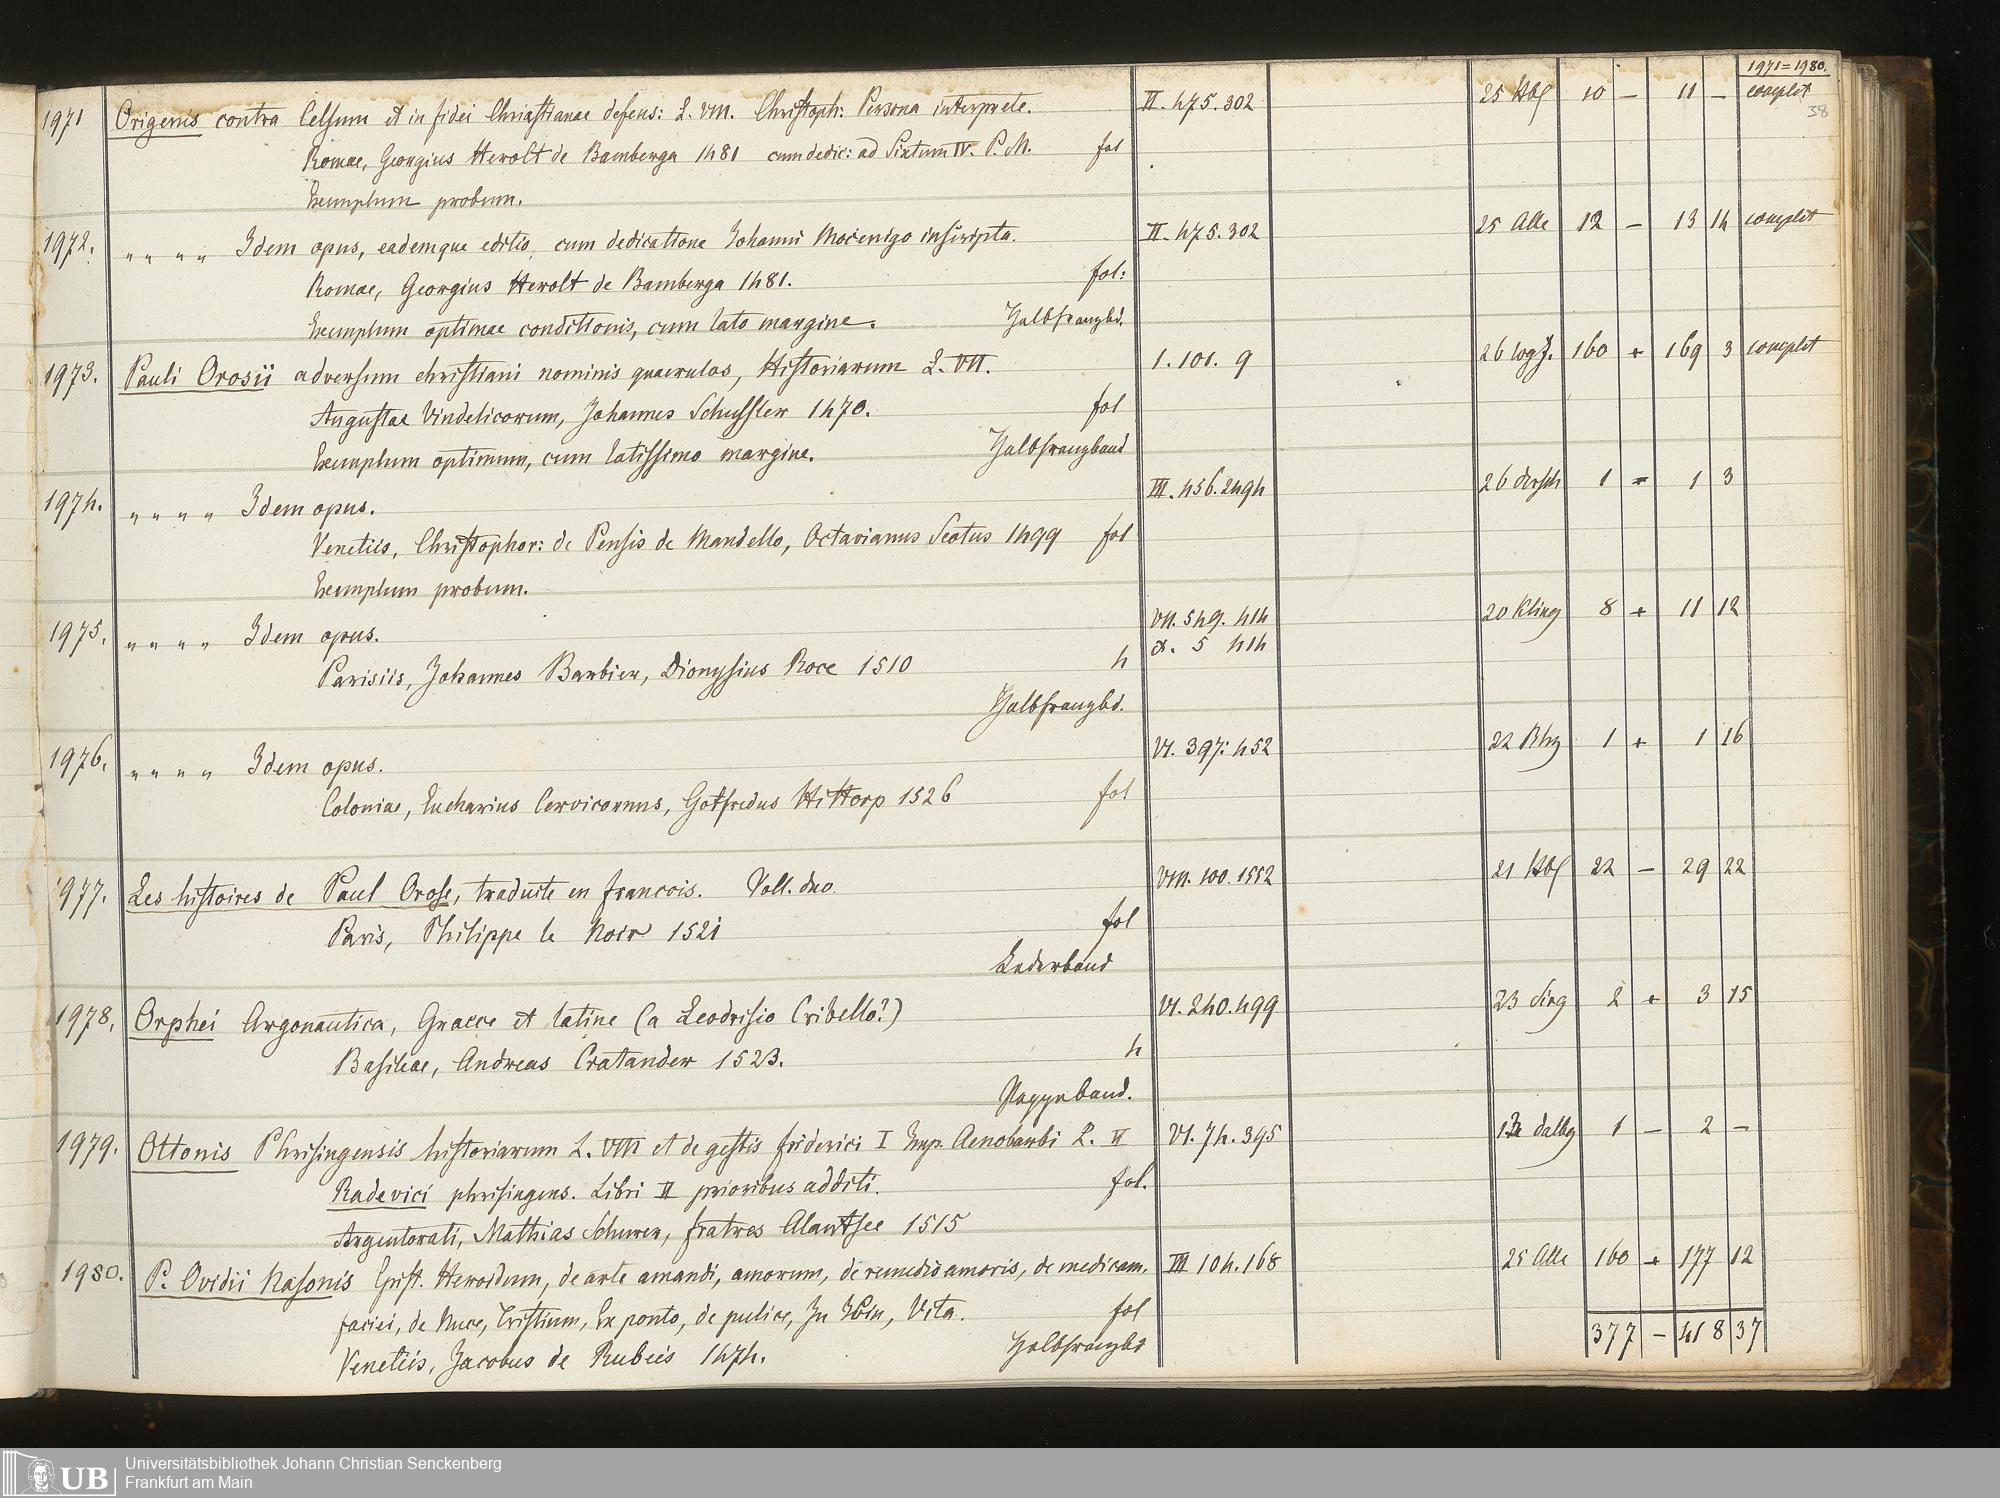 1971=1980.
1971 Origenis contra Celsum et in fidei Christianae defens: L. VIII. Christoph: Persona interprete. II. 475. 302 25 10 – 11 – complet
38
Romae, Georgius Herolt de Bamberga 1481 cum dedic: ad Sixtum IV. P. M. fol
Exemplum probum.
1972. „ „ „ „ Idem opus, eademque editio, cum dedicatione Johanni Mocenigo inscripta. II. 475. 302 25 Alle 12 – 13 14 complet
Romae, Georgius Herolt de Bamberga 1481. fol:
Exemplum optimae conditionis, cum lato margine. Halbfranzbd.
1973. Pauli Orosii adversum christiani nominis quaerulos, Historiarum L. VII. 1. 101. 9 26 160 + 169 3 complet
Augustae Vindelicorum, Johannes Schussler 1470. fol
Exemplum optimum, cum latissimo margine. Halbfranzband
1974. „ „ „ „ Idem opus. III. 456. 2494 26 1 – 1 3
Venetiis, Christophor: de Pensis de Mandello, Octavianus Scotus 1499 fol
Exemplum probum.
1975. „ „ „ „ Idem opus. VII. 549. 414 20 Kling 8 + 11 12
X. 5 414
Parisiis, Johannes Barbier, Dionysius Roce 1510 4
Halbfranzbd.
1976. „ „ „ „ Idem opus. VI. 397: 452 22 1 + 1 16
Coloniae, Eucharius Cervicornus, Gotfredus Hittorp 1526 fol
1977. Les histoires de Paul Orose, traduite en francois. Voll. duo. VIII. 100. 1552 21 22 – 29 22
Paris, Philippe le Noir 1521 fol
Lederband
1978. Orphei Argonautica, Graece et latine (a Leodrisio Cribello?) VI. 240. 499 23 2 + 3 15
Basileae, Andreas Cratander 1523. 4
Pappeband.
1979. Ottonis Phrisingensis historiarum L. VIII et de gestis friderici I Imp. Aenobarbi L. II VI. 74. 395 Dalbg 1 – 2 –
Radevici phrisingens. Libri II prioribus additi. fol.
Argentorati, Mathias Schurer, fratres Alantsee 1515
1980. P. Ovidii Nasonis Epist. Heroidum, de arte amandi, amorum, de remedio amoris, de medicam. III 104. 168 25 Alle 160 + 177 12
faciei, de Nuce, Tristium, Ex ponto, de pulice, In Ibin, Vita. fol
377 – 418 37
Venetiis, Jacobus de Rubeis 1474. Halbfranzbd
UB Universitätsbibliothek Johann Christian Senckenberg
Frankfurt am Main